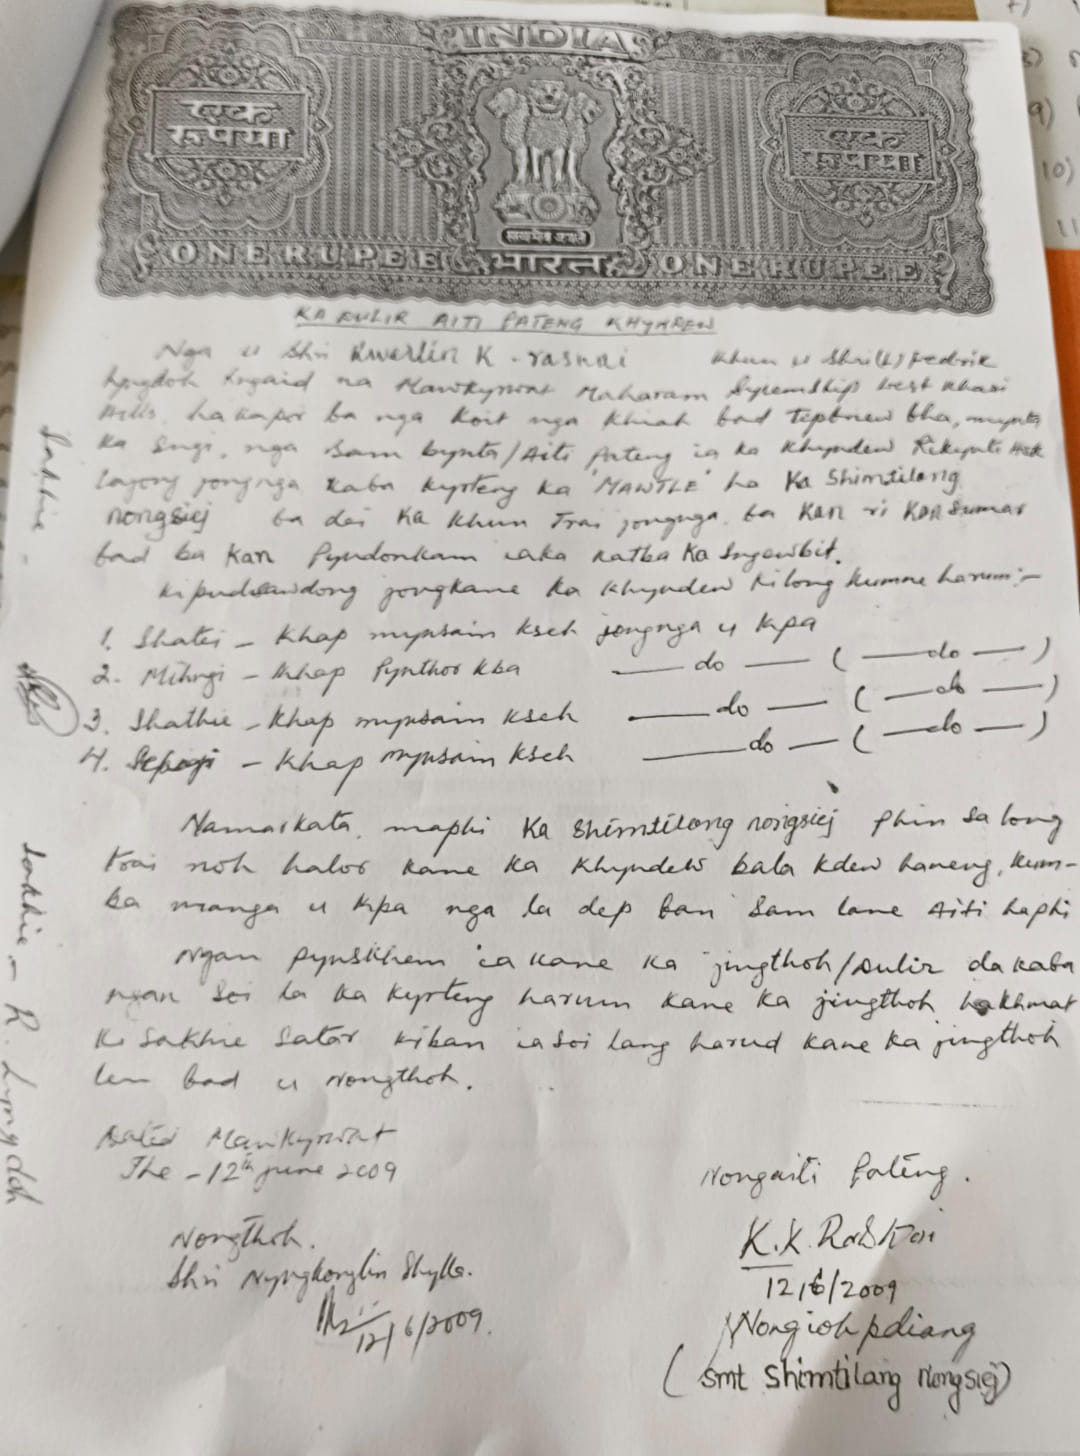 INDIA
एक
रूपया
एक
रूपया
सत्यमेव जयते
ONE RUPEE भारत ONE RUPEE
KA DULIR AITI PATENG KHYNDEW
Nga u Shri K. Raskai Khun u Shri (L) Fedrik
Lyngdoh na Mawkyrwat Maharam Syiemship West Khasi
Hills, hakapor ba nga Koit nga Khiah bad tepbnew bha, mynta
Ka Sngi, nga Sam bynta/Aiti Pateng ia Ka Khyndew Rikynti Hok
Lajong jongnga Kaba Kyrteng Ka "MAWTLE" ha Ka Shimtilang
Nongsiej ba dei Ka Khun Trai jongnga ba Kan ri Kan Sumar
bad ba Kan Pyndonkam iaka Katba Ka Sngewbit.
Ki pudsawdong jongkane Ka Khyndew Kilong Kumne harum:-
1. Shatei - Khap mynsain Kseh jongnga u Kpa
2. Mihngi - Khap Pynthor Kba —do— (—do—)
3. Shathie - Khap mynsain Kseh —do— (—do—)
4. Sepngi - Khap mynsain Kseh —do— (—do—)
Namarkata, maphi Ka Shimtilang Nongsiej Phin Sa long
trai noh halor Kane Ka Khyndew bala Kdew haneng, Kum-
ba manga u Kpa nga la dep ban Sam lane Aiti haphi
Ngan pynskhem ia Kane Ka jingthoh/Dulir da Kaba
ngan Soi la Ka Kyrteng harum Kane Ka jingthoh hakhmat
Ki Sakhie Satar Kiban ia Soi lang harud Kane Ka jingthoh
lem bad u Nongthoh.
Dated Mawkyrwat
The - 12th June 2009
Nongaiti Pateng.
K.K. Raskai
12/6/2009
Nongthoh.
Shri Shylla.
12/6/2009.
Nongioh pdiang
(Smt Shimtilang Nongsiej)
Sakhie -
Sakhie - R. Lyngdoh